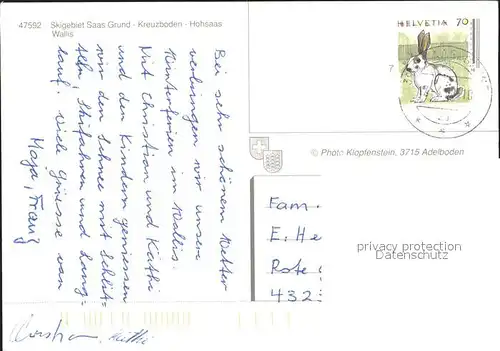 47592 Skigebiet Saas Grund - Kreuzboden - Hohsaas
Wallis
Bei sehr schönem Wetter
verbringen wir unsere
Winterferien im Wallis.
Mit Christian und Käthi
und den Kindern geniessen
wir den Schnee mit Schlit=
teln, Skifahren und Lang=
lauf. Viele Grüsse von
Maja, Franz
Christian Käthi
HELVETIA 70
© Photo Klopfenstein, 3715 Adelboden
Fam.
E. He
Rote
432
privacy protection
Datenschutz